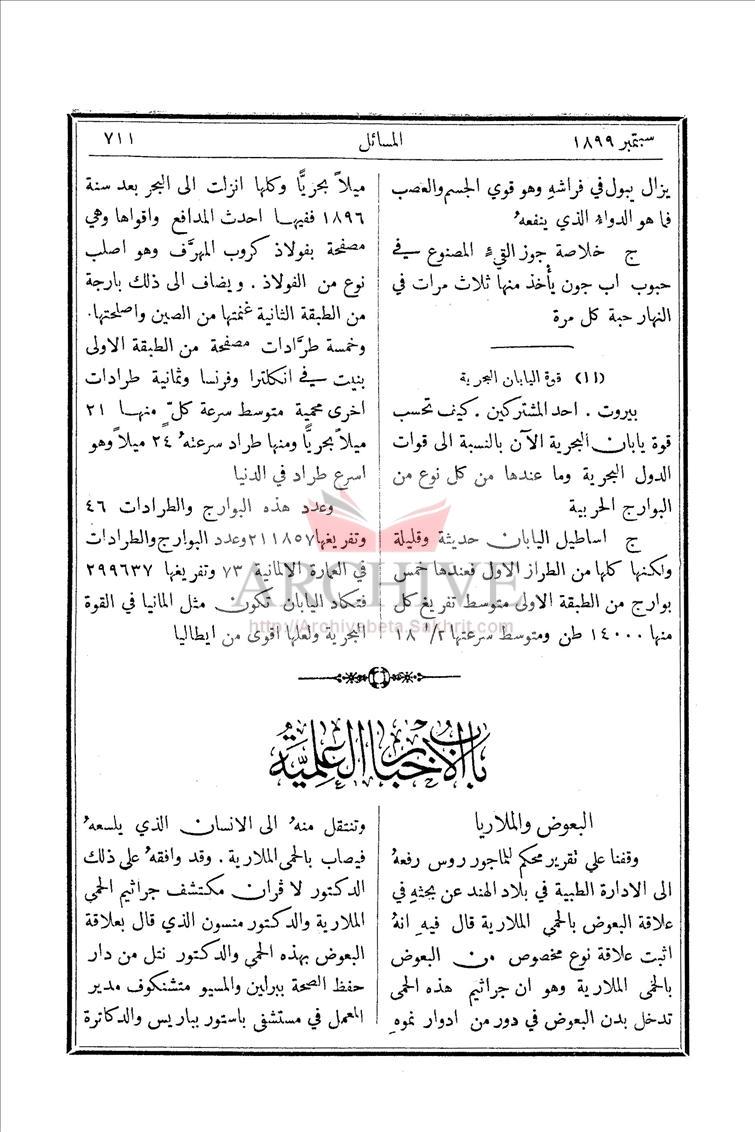 سبتمبر ١٨٩٩
المسائل
٧١١
يزال يبول في فراشهِ وهو قوي الجسم والعصب
فما هو الدواءُ الذي ينفعهُ
ج خلاصة جوز القيءِ المصنوع في
حبوب اب جون يأخذ منها ثلاث مرات في
النهار حبة كل مرة
(١١) قوة اليابان البحرية
بيروت . احد المشتركين . كيف تحسب
قوة يابان البحرية الآن بالنسبة الى قوات
الدول البحرية وما عندها من كل نوع من
البوارج الحربية
ج اساطيل اليابان حديثة وقليلة
ولكنها كلها من الطراز الاول فعندها خمس
بوارج من الطبقة الاولى متوسط تفريغ كل
منها ١٤٠٠٠ طن ومتوسط سرعتها ١٨
ميلاً بحريًّا وكلها انزلت الى البحر بعد سنة
١٨٩٦ ففيها احدث المدافع واقواها وهي
مصفحة بفولاذ كروب المهرَّف وهو اصلب
نوع من الفولاذ . ويضاف الى ذلك بارجة
من الطبقة الثانية غنمتها من الصين واصلحتها.
وخمسة طرَّادات مصفحة من الطبقة الاولى
بنيت في انكلترا وفرنسا وثمانية طرادات
اخرى محمية متوسط سرعة كلٍّ منها ٢١
ميلاً بحريًّا ومنها طراد سرعتهُ ٢٤ ميلاً وهو
اسرع طراد في الدنيا
وعدد هذه البوارج والطرادات ٤٦
وتفريغها ٢١١٨٥٧ وعدد البوارج والطرادات
في العمارة الالمانية ٧٣ وتفريغها ٢٩٩٦٣٧
فتكاد اليابان تكون مثل المانيا في القوة
البحرية ولعلها اقوى من ايطاليا
ARCHIVE
http://Archivebeta.Sakhrit.com
باب الاخبار العلميّة
البعوض والملاريا
وقفنا على تقرير محكم للماجور روس رفعهُ
الى الادارة الطبية في بلاد الهند عن بحثهِ في
علاقة البعوض بالحمى الملارية قال فيهِ انهُ
اثبت علاقة نوع مخصوص من البعوض
بالحمى الملارية وهو ان جراثيم هذه الحمى
تدخل بدن البعوض في دور من ادوار نموهِ
وتنتقل منهُ الى الانسان الذي يلسعهُ
فيصاب بالحمى الملارية . وقد وافقهُ على ذلك
الدكتور لا ڤران مكتشف جراثيم الحمى
الملارية والدكتور منسون الذي قال بعلاقة
البعوض بهذه الحمى والدكتور نتل من دار
حفظ الصحة ببرلين والمسيو متشنكوف مدير
المعمل في مستشفى باستور بباريس والدكاترة